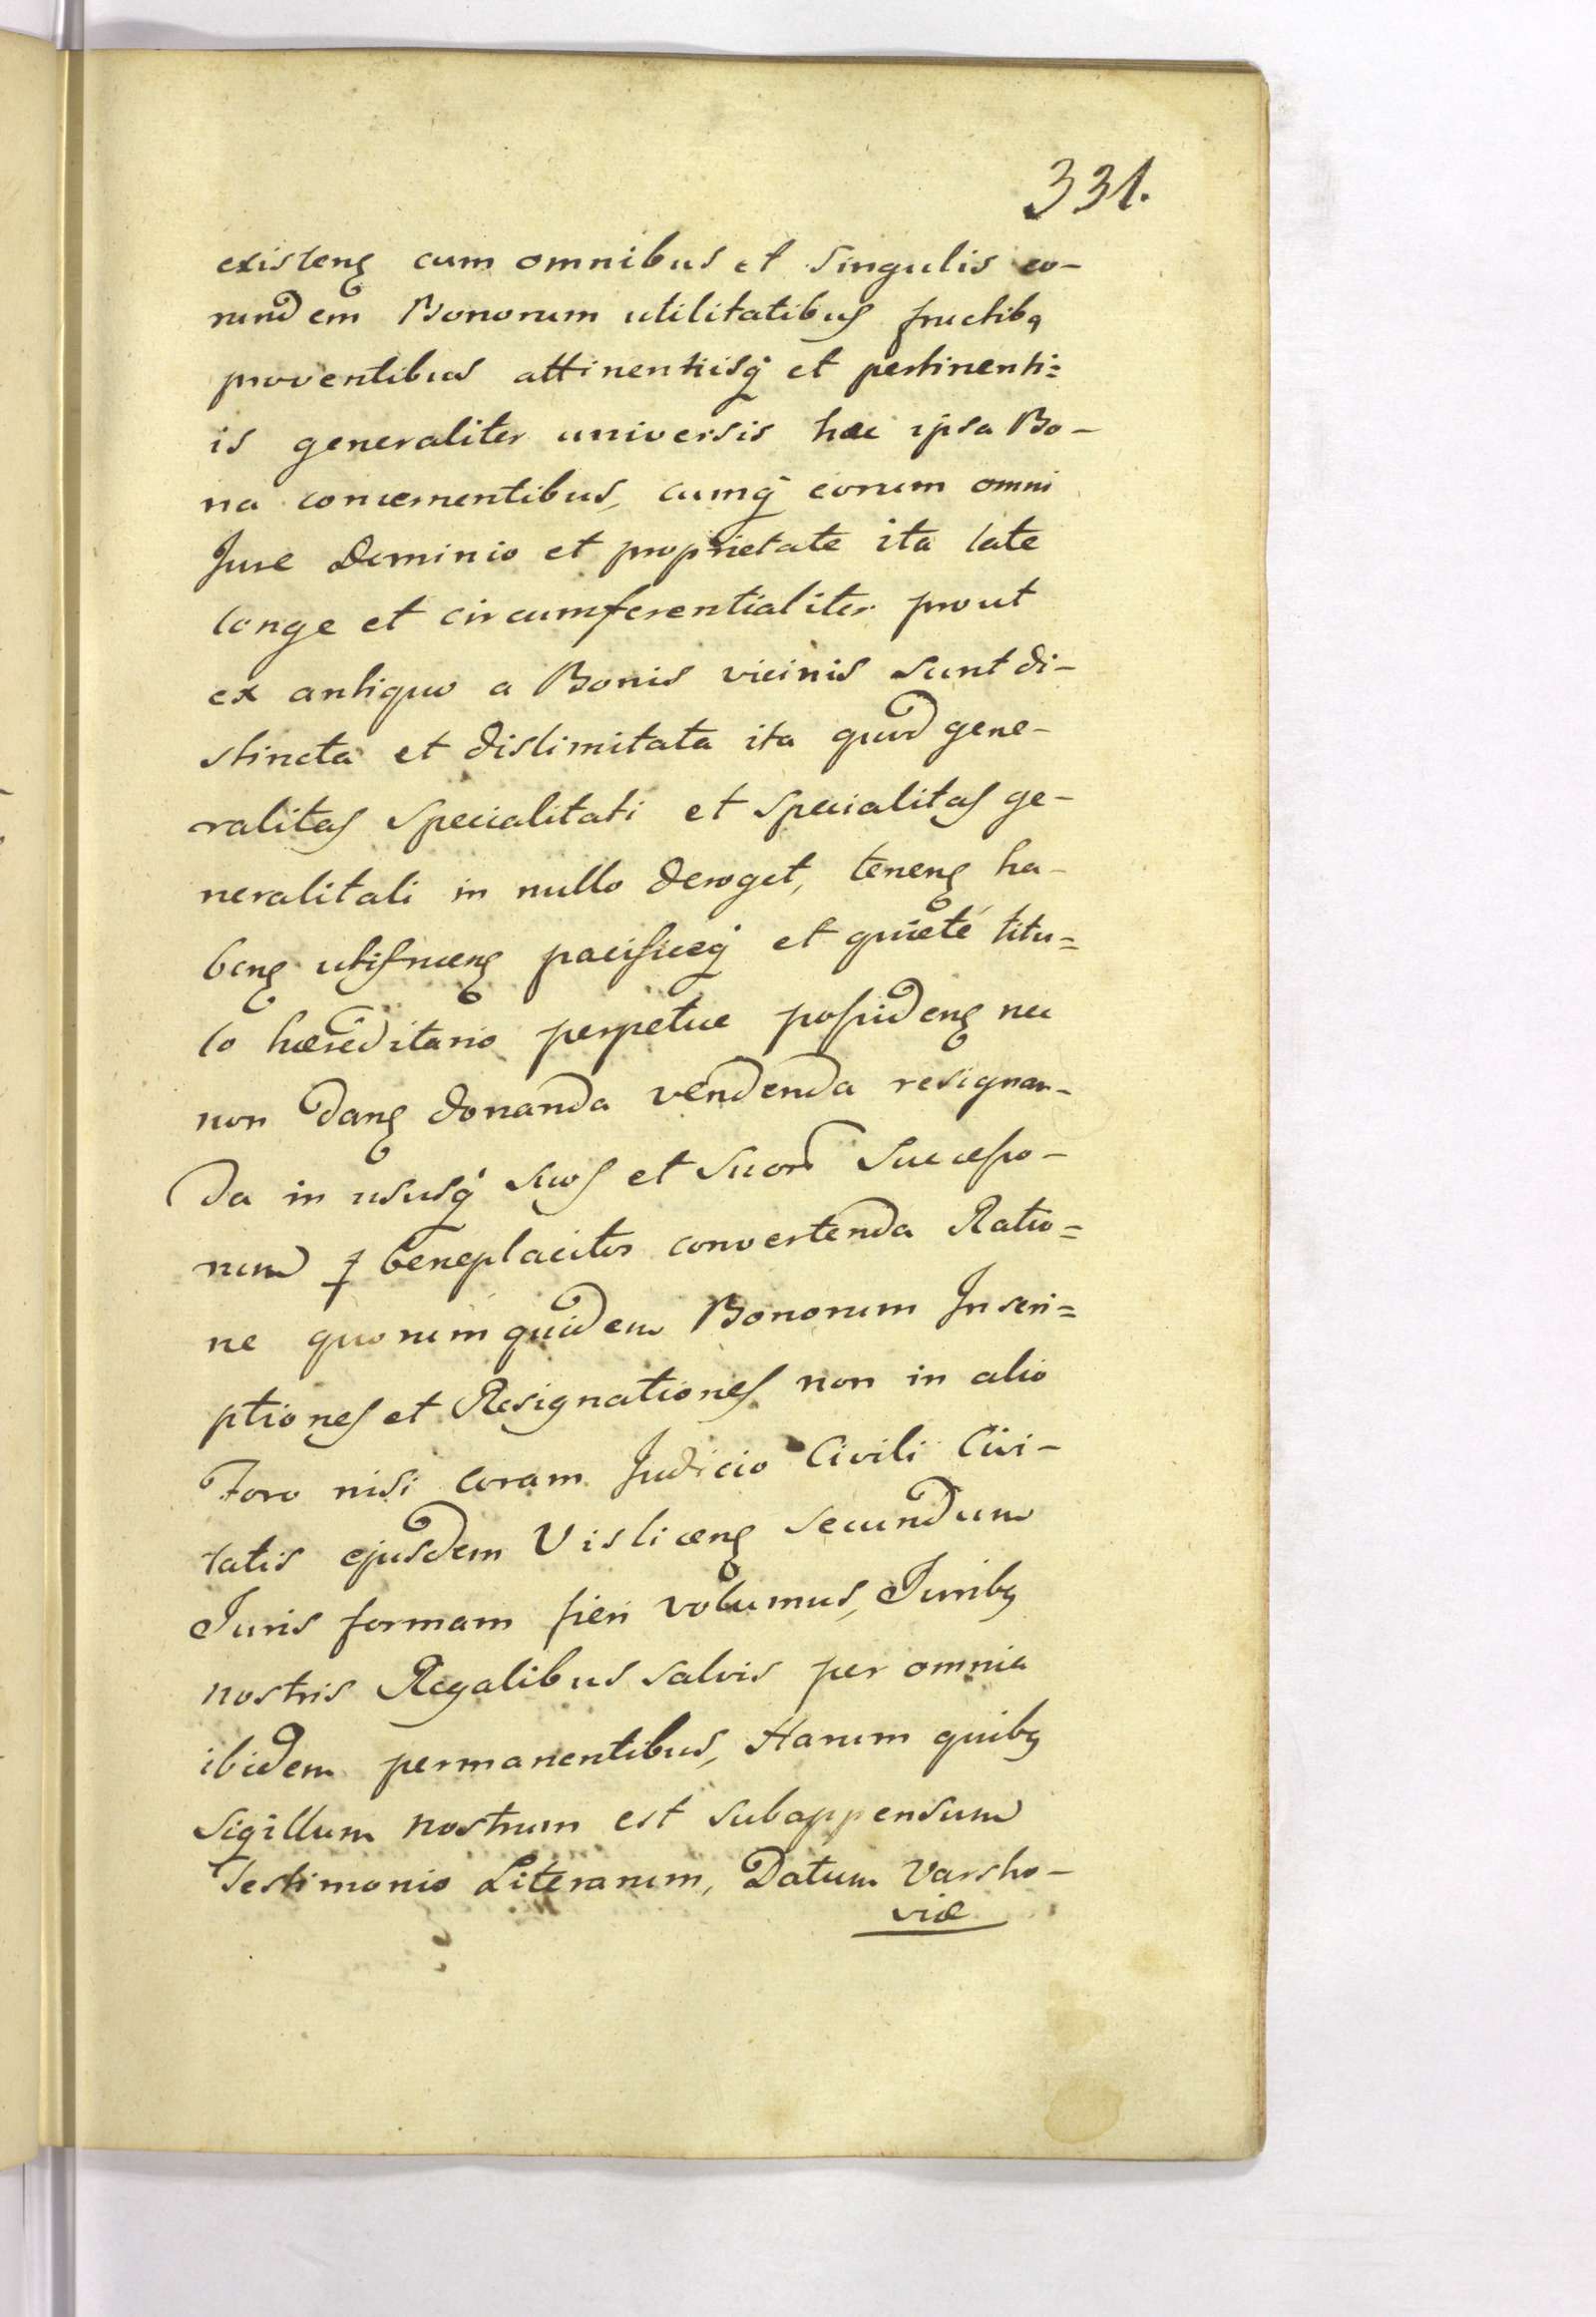 331.
existenꝫ cum omnibus et singulis eo-
rundem Bonorum utilitatibus fructibꝫ
proventibus attinentiisqꝫ et pertinenti=
is generaliter universis hæc ipsa Bo-
na concernentibus, cumqꝫ eorum omni
Jure Dominio et proprietate ita late
longe et circumferentialiter prout
ex antiquo a Bonis vicinis sunt di-
stincta et dislimitata ita quod gene-
ralitas specialitati et specialitas ge-
neralitati in nullo deroget, tenenꝫ ha-
benꝫ utifruenꝫ pacificeqꝫ et quiete titu=
lo hæreditario perpetue possidenꝫ nec
non danꝫ donanda vendenda resignan-
da in ususqꝫ suos et suor Successo-
rum ꝑ beneplacitis convertenda Ratio=
ne quorumquidem Bonorum Inscri=
ptiones et Resignationes non in alio
Foro nisi coram Judicio Civili Civi-
tatis ejusdem Vislicenꝫ secundum
Juris formam fieri volumus, Juribꝫ
nostris Regalibus salvis per omnia
ibidem permanentibus, Harum quibꝫ
Sigillum nostrum est subappensum
Testimonio Literarum, Datum Varsho-
viæ